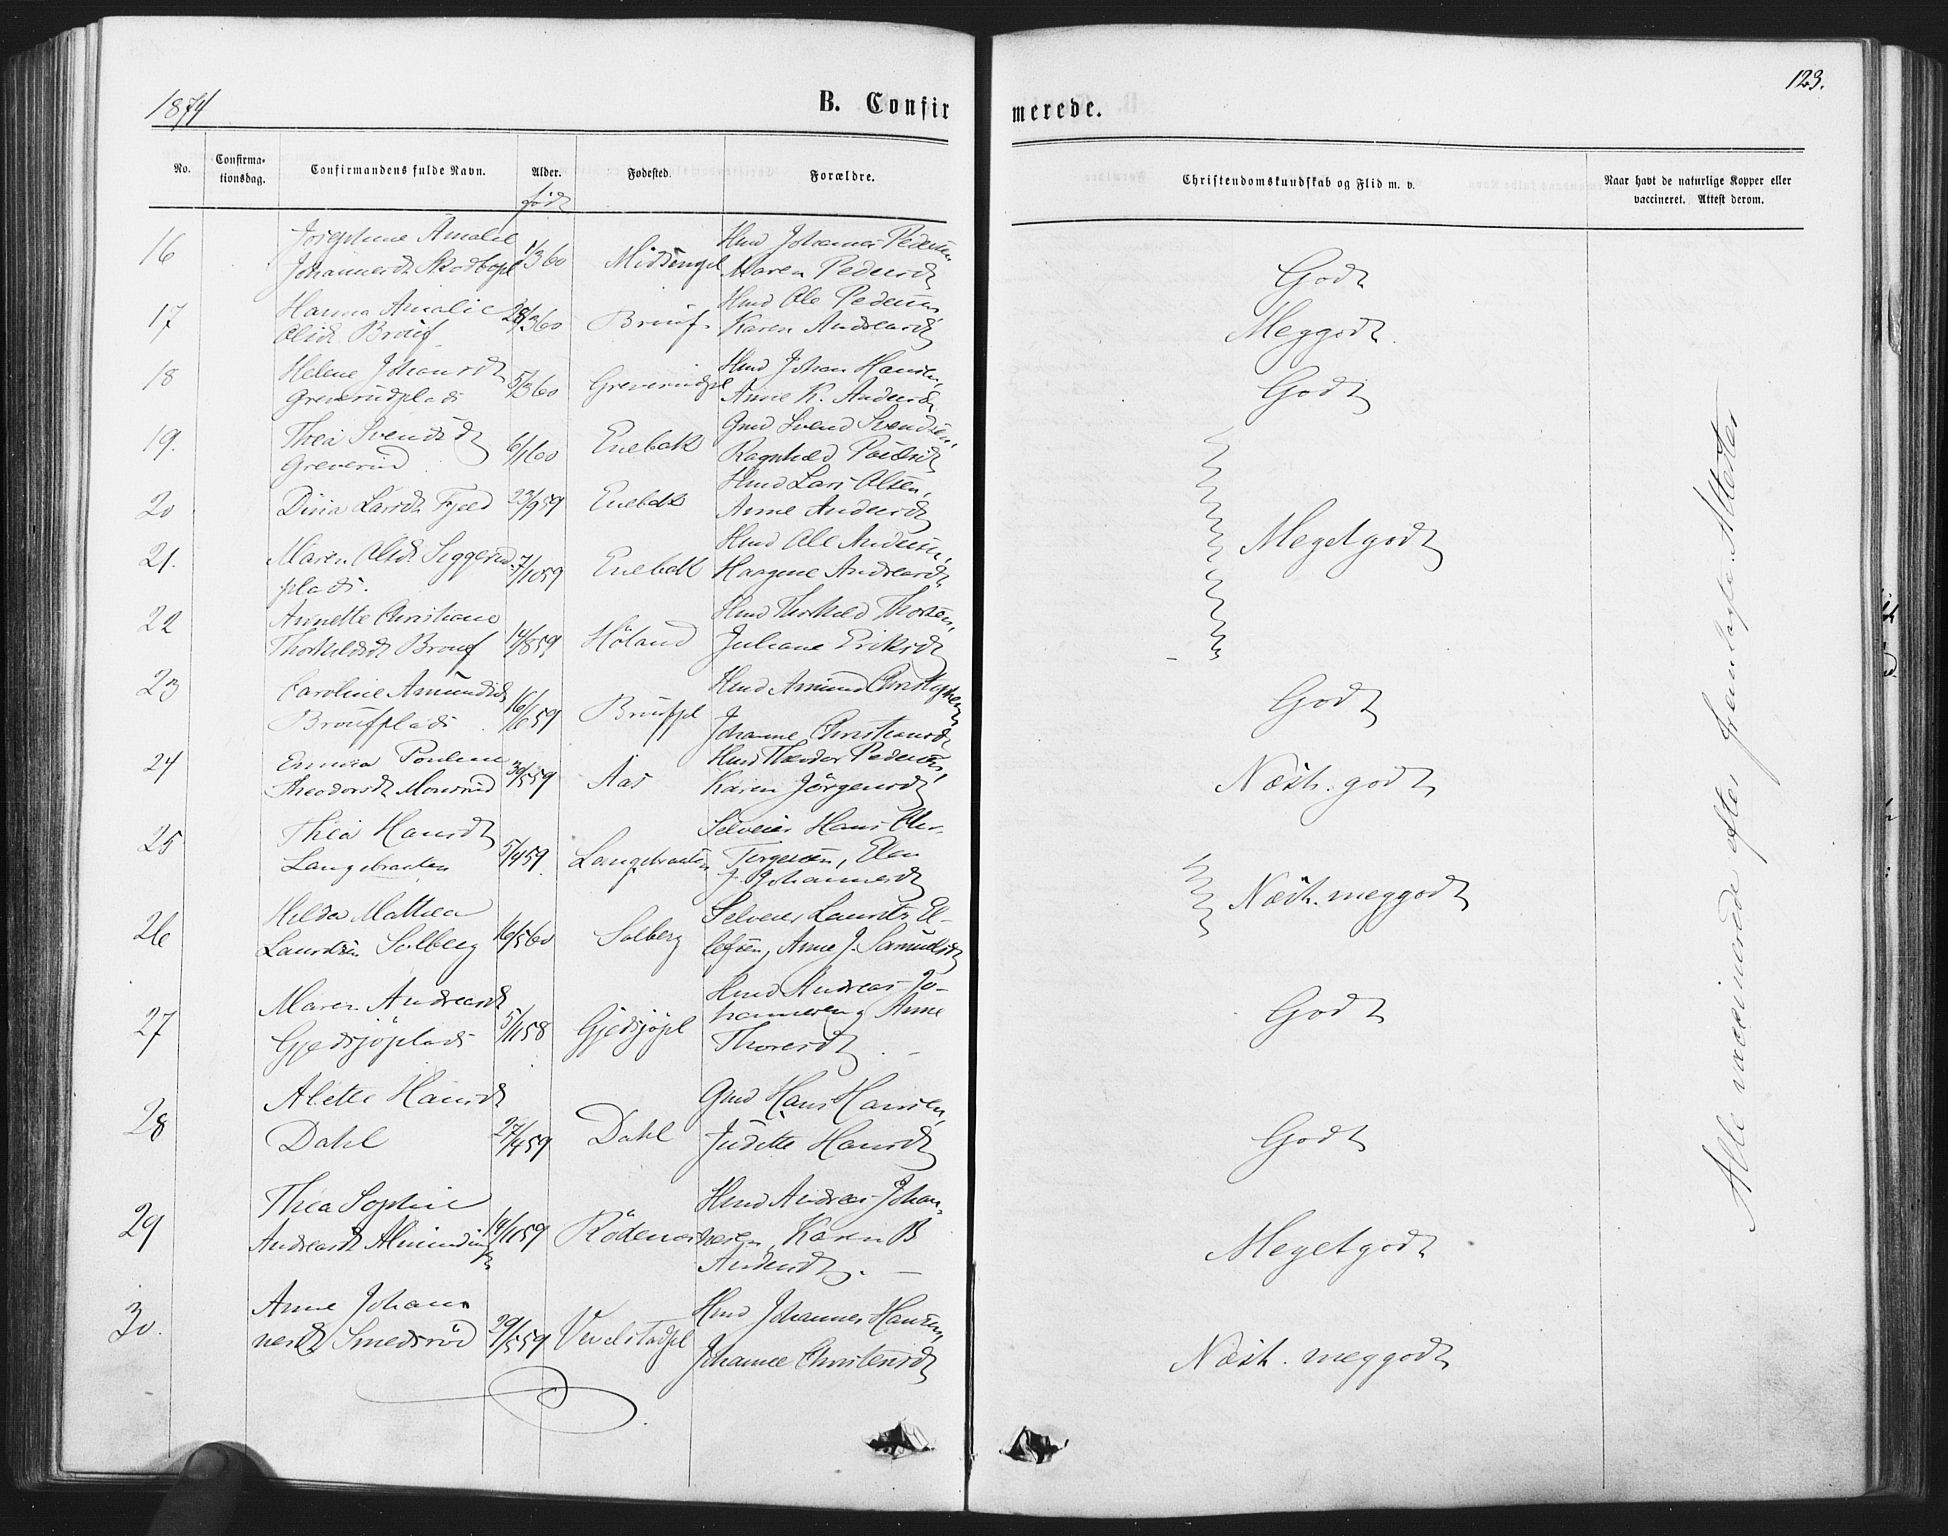 1874
B. Confir
merede.
123.
No.
Confirma-
tionsdag.
Confirmandens fulde Navn.
Alder.
født
Fødested.
Forældre.
Christendomskundskab og Flid m. v.
Naar havt de naturlige Kopper eller
vaccineret. Attest derom.
16
Josephine Amalie
Johannesdt
1/3 60
Hmd Johannes Pedersen
Maren Pedersdt
Godt
17
Hanna Amalie
Olsdt
28/3 60
Hmd Ole Pedersen,
Karen Andreasdt
Meggodt.
18
Helene Johansdt
Greverudplads
5/3 60
Greverudpl
Hmd Johan Hansen,
Anne K. Andersdt
Godt
19.
Thea Svendsdt
Greverud
6/1 60
Enebak
Gmd Svend Svendsen,
Ragnhild
20
Dina Larsdt Fjeld
23/9 59
Enebak
Hmd Lars Olsen,
Anne Andersdt
Megetgodt
21.
Maren Olsdt Siggerud
plads.
7/10 59
Enebak
Hmd Ole Andersen,
Andreasdt
22
Annette Christiane
Thorkildsdt
14/8 59
Høland
Hmd Thorkild Thorsen,
Juliane Eriksdt
23
Caroline Amundsdt
16/6 59
Hmd Amund Christophersen
Johanne Christiansdt
Godt
24
Emma Pouline
Theodorsdt
30/5 59
Aas
Hmd Theodor Pedersen,
Karen Jörgensdt
Næst. godt
25
Thea Hansdt
Langebraaten
5/4 59.
Langebraaten
Selveier Hans Chr.
Torgersen, Elen
J. Johannesdt
Næst. meggodt
26
Hilda Mathea
Lauritsen Solberg
16/5 60
Solberg
Selveier Laurits El-
lefsen, Anne J. Samuelsdt
27
Maren Andreasdt
Gjedsjöplads
5/11 58
Gjedsjöpl
Hmd Andreas Jo-
hannesen, Anne
Thoresdt.
Godt
28
Alette Hansdt
Dahl
27/4 59
Dahl
Gmd Hans Hansen,
Judithe Hansdt
Godt
29
Thea Sophie
Andreasdt
19/11 59
Rödenæs
Hmd Andreas Johan-
nesen, Karen B
Andersdt.
Megetgodt
30.
Anne Johan
nesdt Smedsröd
29/5 59
Vevelstadpl
Hmd Johannes Hansen,
Johanne Christensdt
Næst. meggodt
Alle vaccinerede efter fremlagte Attester